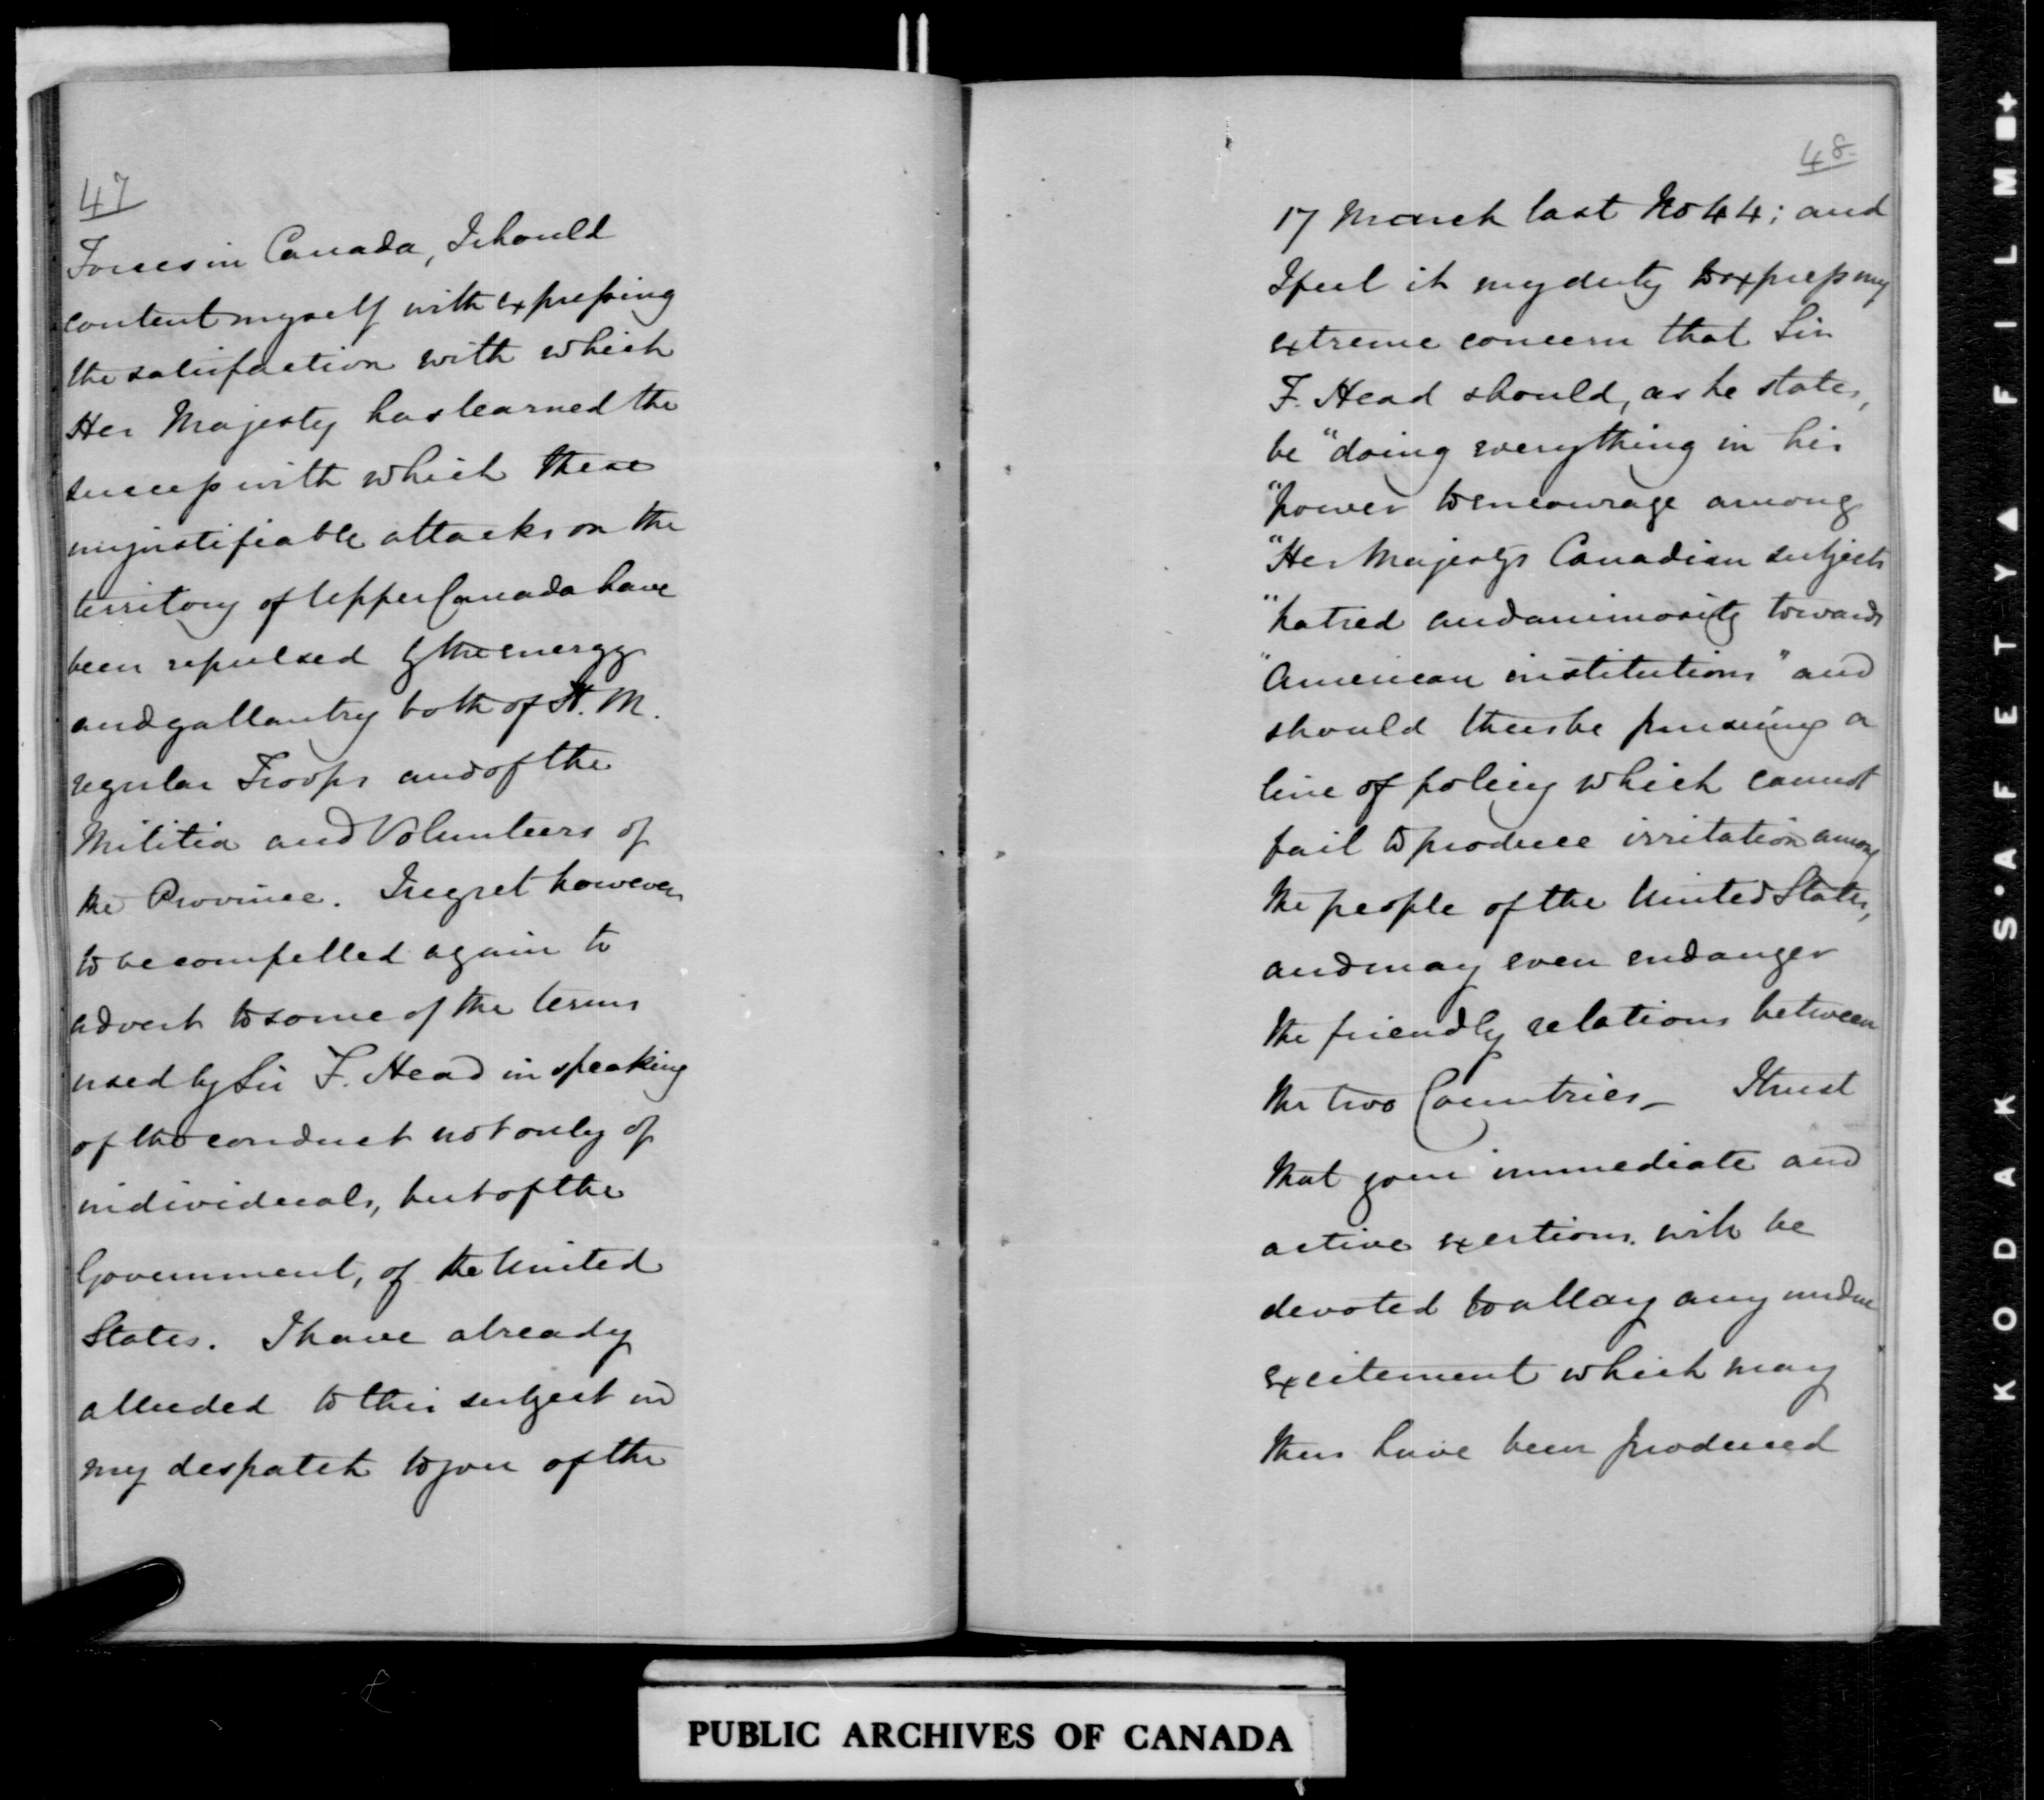 47
Forces in Canada, I should
content myself with expressing
the satisfaction with which
Her Majesty has learned the
success with which these
unjustifiable attacks on the
territory of Upper Canada have
been repulsed by the energy
and gallantry both of H. M.
regular Troops and of the
Militia and Volunteers of
the Province. I regret however
to be compelled again to
advert to some of the terms
used by Sir F. Head in speaking
of the conduct not only of
individuals, but of the
Government, of the United
States. I have already
alluded to this subject in
my despatch to you of the
48
17 March last No 44; and
I feel it my duty to express my
extreme concern that Sir
F. Head should, as he states,
be "doing everything in his
"power to encourage among
"Her Majestys Canadian subjects
"hatred and animosity towards
"American institutions" and
should thus be pursuing a
line of policy which cannot
fail to produce irritation among
the people of the United States,
and may even endanger
the friendly relations between
the two Countries _ I trust
that your immediate and
active exertions will be
devoted to allay any undue
excitement which may
thus have been produced
PUBLIC ARCHIVES OF CANADA
KODAK S'AFETY▲FILM■+